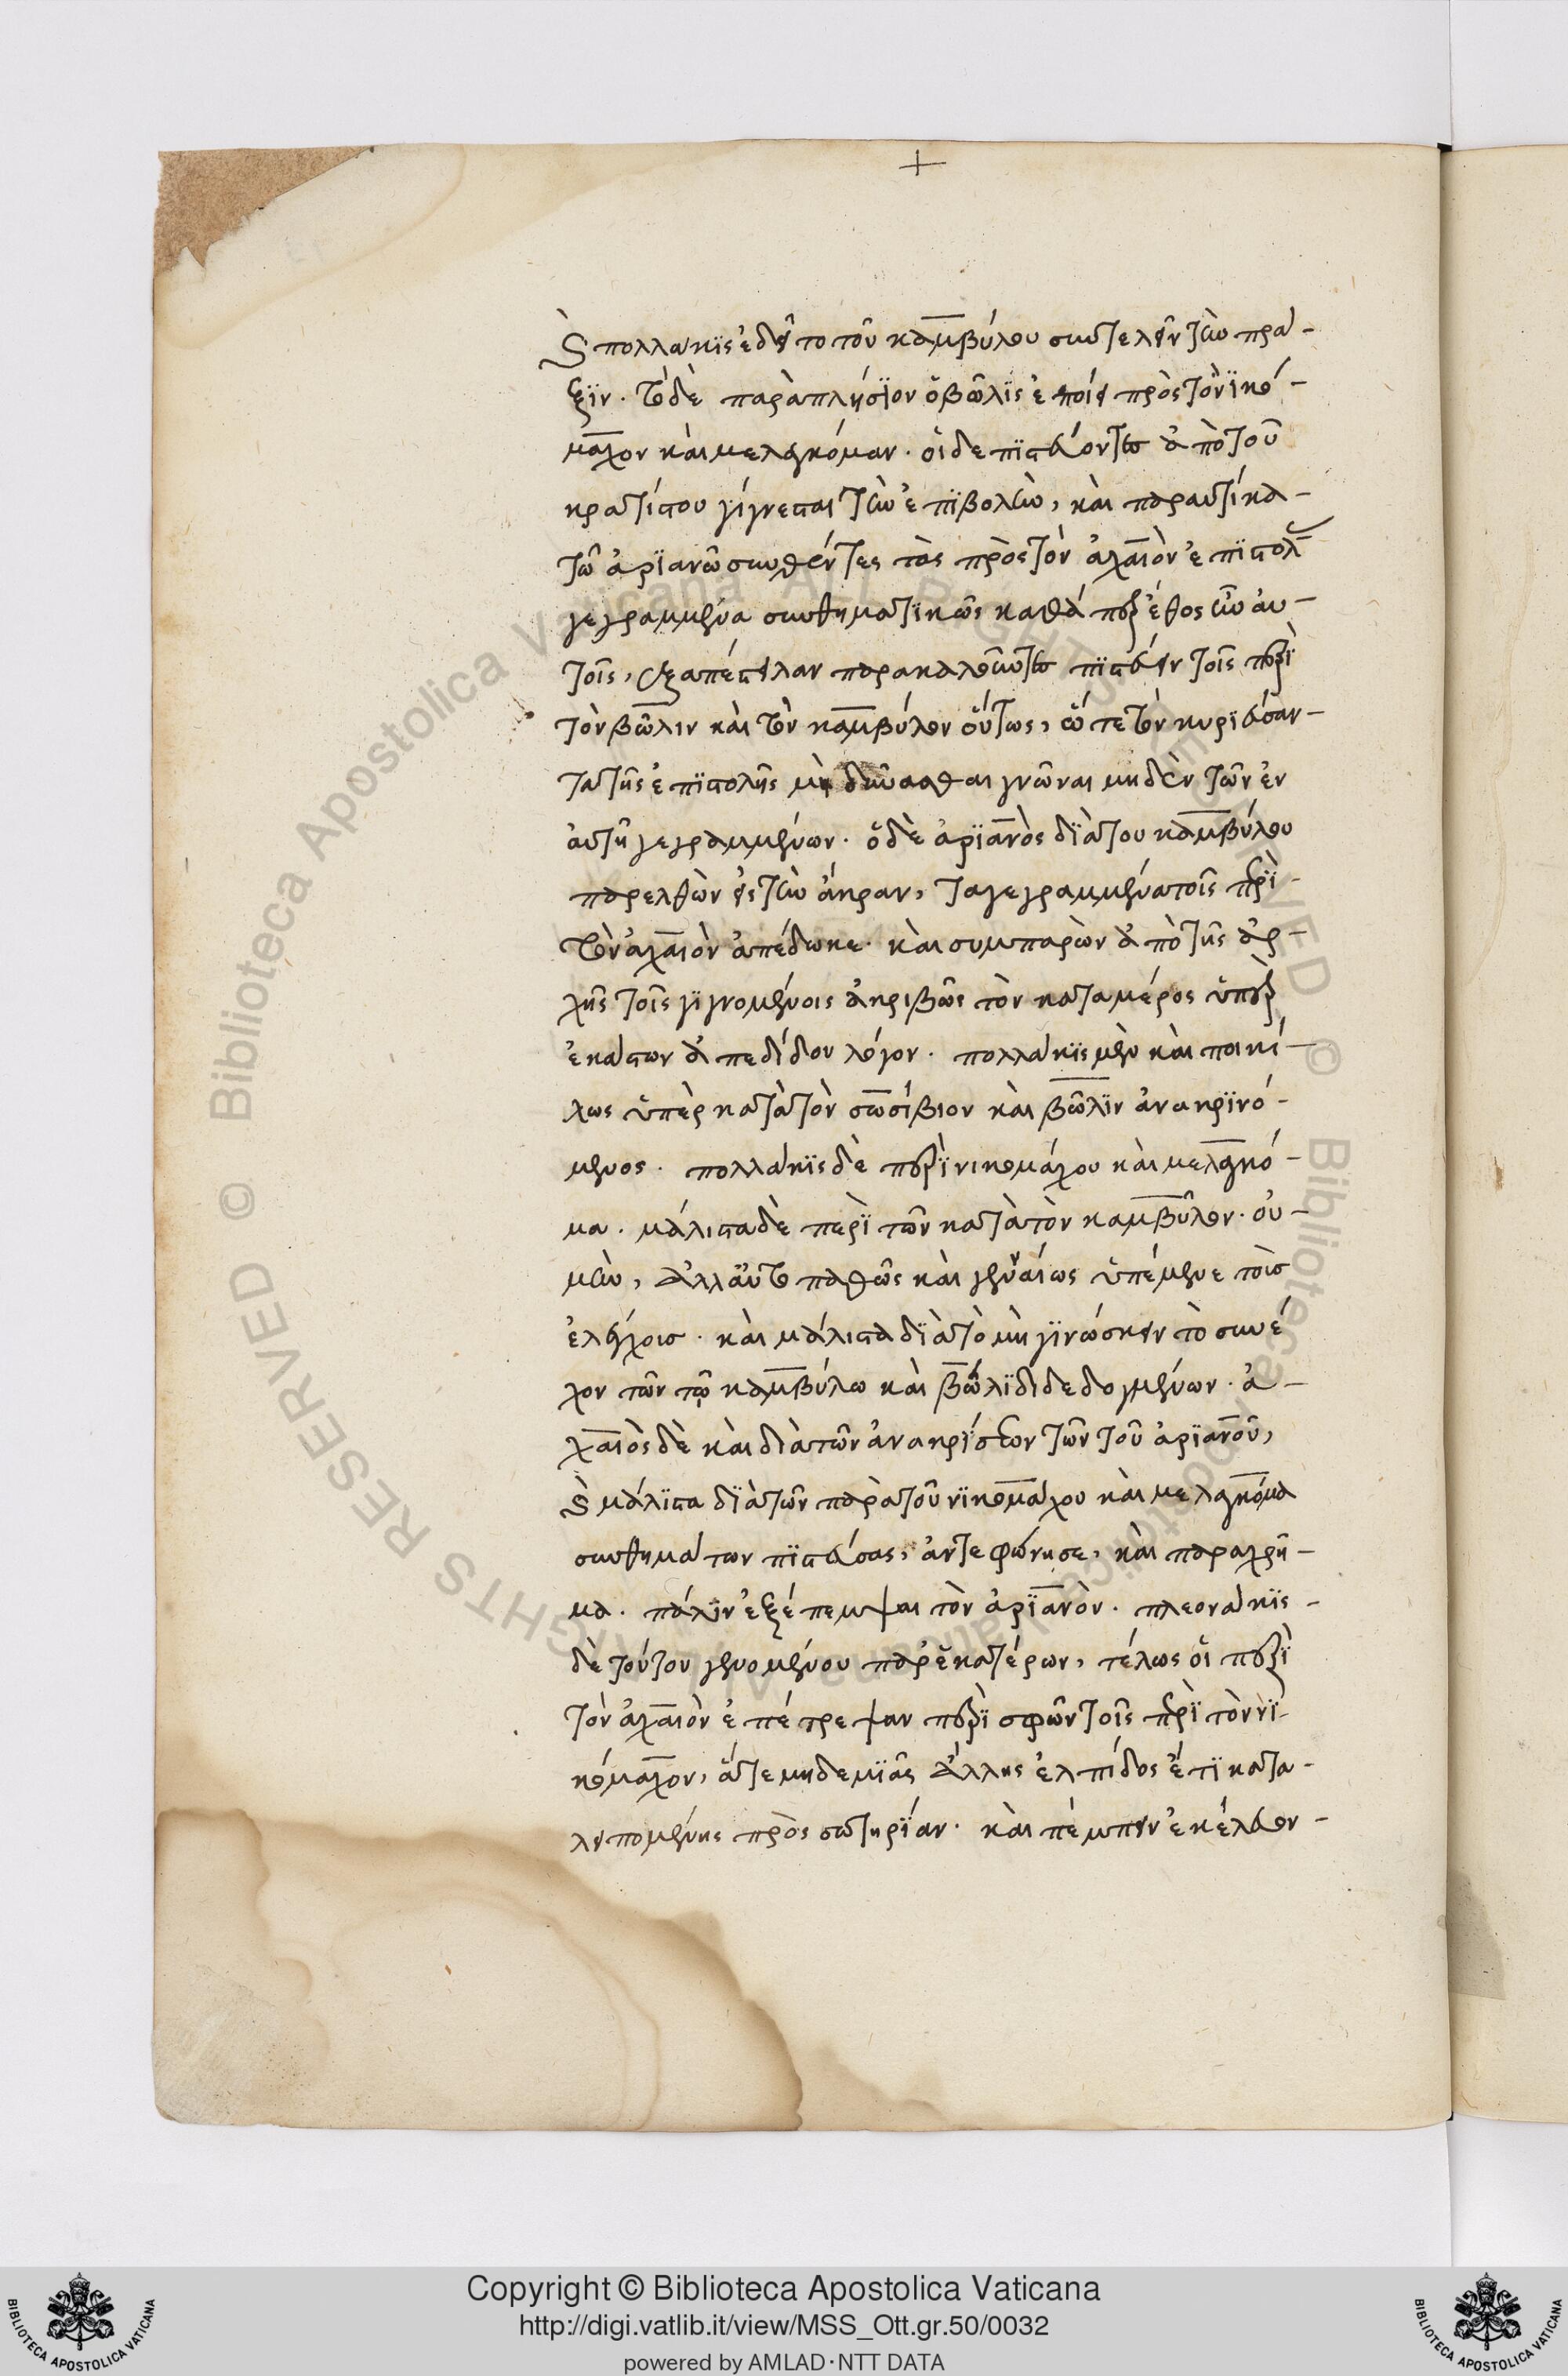 +
καὶ πολλάκις ἐδεῖτο τοῦ καμβύλου συντελεῖν τὴν πρᾶ-
ξιν. τὸ δὲ παραπλήσιον ὁ βῶλις ἐποίει πρὸς τὸν νικό-
μαχον καὶ μελαγκόμαν. οἱ δὲ πιστεύοντες ἀπὸ τοῦ
κρατίστου γίγνεσθαι τὴν ἐπιβολὴν, καὶ παραυτίκα
τῷ ἀριανῷ συνθέντες τὰς πρὸς τὸν ἀχαιὸν ἐπιστολὰς
γεγραμμένα συνθηματικῶς καθάπερ ἔθος ἦν αὐ-
τοῖς, ἐξαπέστειλαν παρακαλοῦντες πιστεύειν τοῖς περὶ
τὸν βῶλιν καὶ τὸν καμβύλον οὕτως, ὥστε τὸν κυριεύσαν-
τα τῆς ἐπιστολῆς μὴ δύνασθαι γνῶναι μηδὲν τῶν ἐν
αὐτῇ γεγραμμένων. ὁ δὲ ἀριανὸς διὰ του καμβύλου
παρελθὼν εἰς τὴν ἄκραν, τὰ γεγραμμένα τοῖς περὶ
τὸν ἀχαιὸν ἀπέδωκε. καὶ συμπαρὼν ἀπὸ τῆς ἀρ-
χῆς τοῖς γιγνομένοις ἀκριβῶς τὸν κατα μέρος ὑπὲρ
ἑκάστων ἀπεδίδου λόγον. πολλάκις μὲν καὶ ποικί-
λως ὑπὲρ κατὰ τὸν σωσίβιον καὶ βῶλιν ἀνακρινό-
μενος. πολλάκις δὲ περὶ νικομάχου καὶ μελαγκό-
μα. μάλιστα δὲ περὶ τῶν κατὰ τὸν καμβύλον. οὐ
μὴν, ἀλλ' αὐτοπαθῶς καὶ γενναίως ὑπέμενε τοῖς
ἐλέγχοις. καὶ μάλιστα διὰ τὸ μὴ γινώσκειν τὸ συνέ-
χον τῶν τῷ καμβύλω καὶ βώλιδι δεδογμένων. ἀ-
χαιὸς δὲ καὶ διὰ τῶν ἀνακρίσεων τῶν τοῦ ἀριανοῦ,
καὶ μάλιστα διὰ τῶν παρὰ τοῦ νικομάχου καὶ μελαγκόμα
συνθημάτων πιστεύσας, ἀντεφώνησε, καὶ παραχρῆ-
μα. πάλιν ἐξέπεμψαι τὸν ἀριανὸν. πλεονάκις
δὲ τούτου γενομένου παρ' ἑκατέρων, τέλως οἱ περὶ
τὸν ἀχαιὸν ἐπέτρεψαν περὶ σφῶν τοῖς περὶ τὸν νι-
κόμαχον, ἅτε μηδεμιᾶς ἄλλης ἐλπίδος ἔτι κατα-
λειπομένης πρὸς σωτηρίαν. καὶ πέμπειν ἐκέλευον
Copyright © Biblioteca Apostolica Vaticana
http://digi.vatlib.it/view/MSS_Ott.gr.50/0032
powered by AMLAD·NTT DATA